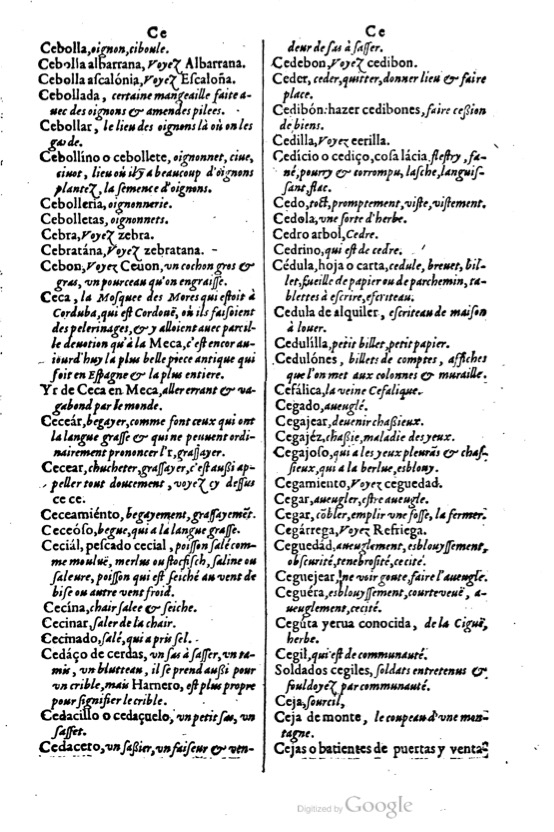 Ce
Cebolla, oignon, ciboule.
Cebolla albarrana, Voyez Albarrana.
Cebolla aſcalónia, Voyez Eſcaloña.
Cebollada, certaine mangeaille faite a-
uec des oignons & amendes pilees.
Cebollar, le lieu des oignons là où on les
garde.
Cebollíno o cebollete, oignonnet, ciue,
ciuot, lieu où il y a beaucoup d'oignons
plantez, la ſemence d'oignons.
Cebollería, oignonnerie.
Cebolletas, oignonnets.
Cebra, Voyez zebra.
Cebratána, Voyez zebratana.
Cebon, Voyez Ceuon, vn cochon gros &
gras, vn pourceau qu'on engraiſſe.
Ceca, la Moſquee des Mores qui eſtoit à
Corduba, qui eſt Cordouë, où ils faiſoient
des pelerinages, & y alloient auec pareil-
le deuotion qu'à la Meca, c'eſt encor au-
iourd'huy la plus belle piece antique qui
ſoit en Eſpagne & la plus entiere.
Yr de Ceca en Meca, aller errant & va-
gabond par le monde.
Ceceár, begayer, comme font ceux qui ont
la langue graſſe & qui ne peuuent ordi-
nairement prononcer l'r, graſſayer.
Cecear, chucheter, graſſayer, c'eſt auſſi ap-
peller tout doucement, voyez cy deſſus
ce ce.
Ceceamiénto, begayement, graſſayemēt.
Ceceóſo, begue, qui a la langue graſſe.
Ceciál, peſcado cecial, poiſſon ſalé com-
me mouluë, merlus ou ſtocfiſch, ſaline ou
ſaleure, poiſſon qui eſt ſeiché au vent de
biſe ou autre vent froid.
Cecína, chair ſalee & ſeiche.
Cecinar, ſaler de la chair.
Cecinado, ſalé, qui a pris ſel.
Cedáço de cerdas, vn ſas à ſaſſer, vn ta-
mis, vn blutteau, il ſe prend auſſi pour
vn crible, mais Harnero, eſt plus propre
pour ſignifier le crible.
Cedacillo o cedaçuelo, vn petit ſas, vn
ſaſſet.
Cedacero, vn ſaſſier, vn faiſeur & ven-
Ce
deur de ſas à ſaſſer.
Cedebon, Voyez cedibon.
Ceder, ceder, quitter, donner lieu & faire
place.
Cedibón: hazer cedibones, faire ceſſion
de biens.
Cedilla, Voyez cerilla.
Cedício o cediço, coſa lácia, fleſtry, fa-
né, pourry & corrompu, laſche, languiſ-
ſant, flac.
Cedo, toſt, promptement, viſte, viſtement.
Cedola, vne ſorte d'herbe.
Cedro arbol, Cedre.
Cedrino, qui eſt de cedre.
Cédula, hoja o carta, cedule, breuet, bil-
let, fueille de papier ou de parchemin, ta-
blettes à eſcrire, eſcriteau.
Cedula de alquiler, eſcriteau de maiſon
à louer.
Cedulílla, petit billet, petit papier.
Cedulónes, billets de comptes, affiches
que l'on met aux colonnes & muraille.
Cefálica, la veine Cefalique.
Cegado, aueuglé.
Cegajear, deuenir chaſſieux.
Cegajéz, chaſſie, maladie des yeux.
Cegajoſo, qui a les yeux pleurās & chaſ-
ſieux, qui a la berlue, esblouy.
Cegamiento, Voyez ceguedad.
Cegar, aueugler, eſtre aueugle.
Cegar, cōbler, emplir vne foſſe, la fermer.
Cegárrega, Voyez Refriega.
Ceguedad, aueuglement, esblouyſſement,
obſcurité, tenebroſité, cecité.
Ceguejear, ne voir goute, faire l'aueugle.
Ceguéra, esblouyſſement, courteveuë, a-
ueuglement, cecité.
Cegúta yerua conocida, de la Ciguë,
herbe.
Cegil, qui eſt de communauté.
Soldados cegiles, ſoldats entretenus &
ſouldoyez par communauté.
Ceja, ſourcil,
Ceja de monte, le coupeau d'vne mon-
tagne.
Cejas o batientes de puertas y venta-
Digitized by Google